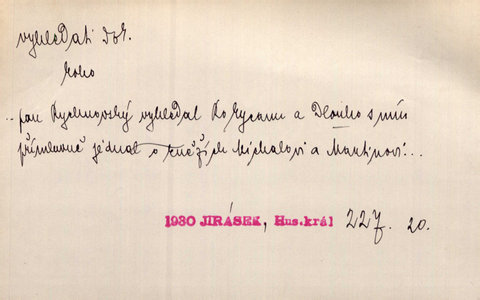 vyhledati dok.
koho
.. pan Rychnovský vyhledal Rokycanu a Dlouho s ním
přímluvně jednal o kněžích Michalovi a Martinovi...
1930 JIRÁSEK, Hus. král 227. 20.